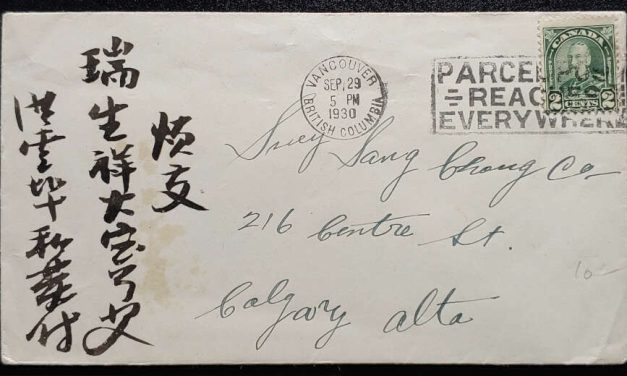 煩交
瑞生祥大宝号
VANCOUVER
SEP. 29
5 PM
1930
BRITISH COLUMBIA
PARCEL
REAC
EVERYWHERE
CANADA
2 CENTS 2
Suey Sang Chong Co
216 Centre St.
Calgary Alta